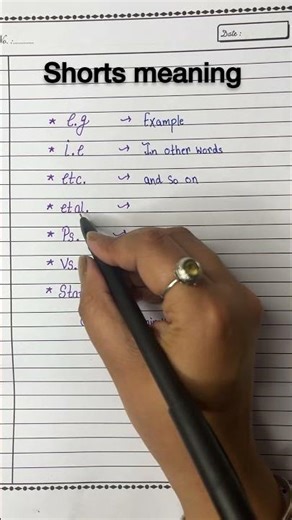 No. :
Date :
Shorts meaning
* e.g → Example
* i.e → In other words
* etc. → and so on
* etal. →
* Ps. →
* Vs.
* Sta